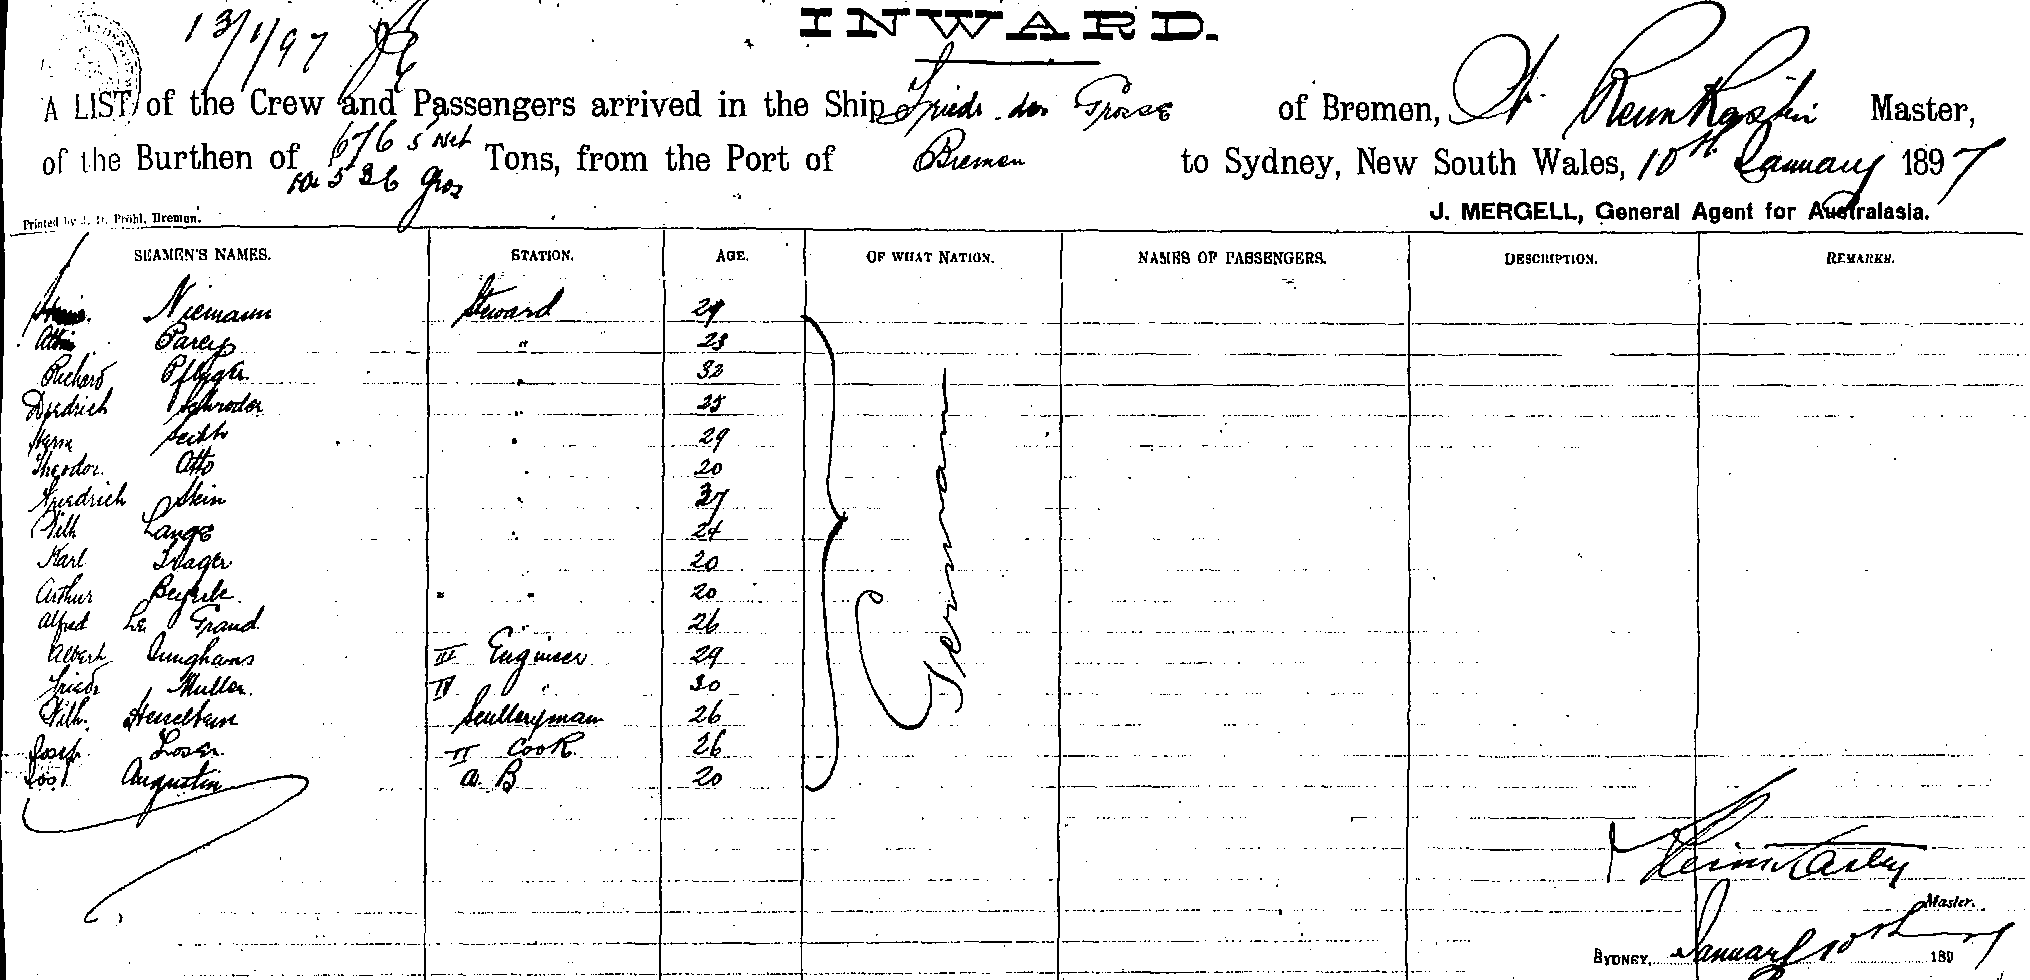 13/1/97
INWARD.
A LIST of the Crew and Passengers arrived in the Ship Friedr. der Grosse of Bremen, Master,
of the Burthen of 6765 net Tons, from the Port of Bremen to Sydney, New South Wales, 10th January 1897
10536 Gros
Printed by Pröhl, Bremen.
J. MERGELL, General Agent for Australasia.
SEAMEN'S NAMES. STATION. AGE. OF WHAT NATION. NAMES OF PASSENGERS. DESCRIPTION. REMARKS.
Niemann Steward 29
Parey " 23
Richard " 32
Diedrich Schroder " 25
Herm " 29
Theodor. Otto " 20
Friedrich Stein " 37
Wilh Lange " 24
Karl 20
Arthur " " 20
Alfred Le Grand 26
Albert Junghans III Engineer 29
Friedr Muller. IV " 30
Wilh. Sculleryman 26
Josef. Loser II Cook. 26
Jos. Augustin A. B 20
German
Master.
SYDNEY, January 10th 1897